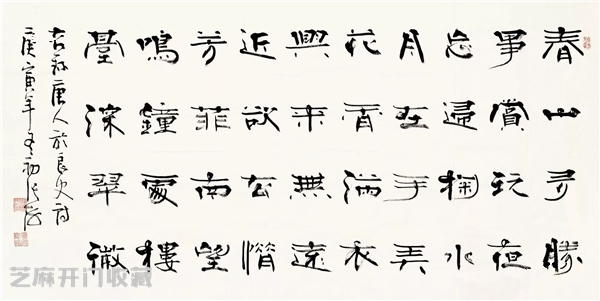 春山多勝
事賞玩夜
忘歸掬水
月在手弄
花香滿衣
興來無遠
近欲去惜
芳菲南望
鳴鐘處樓
臺深翠微
右録唐人於良史詩
庚寅年冬初
芝麻开门收藏